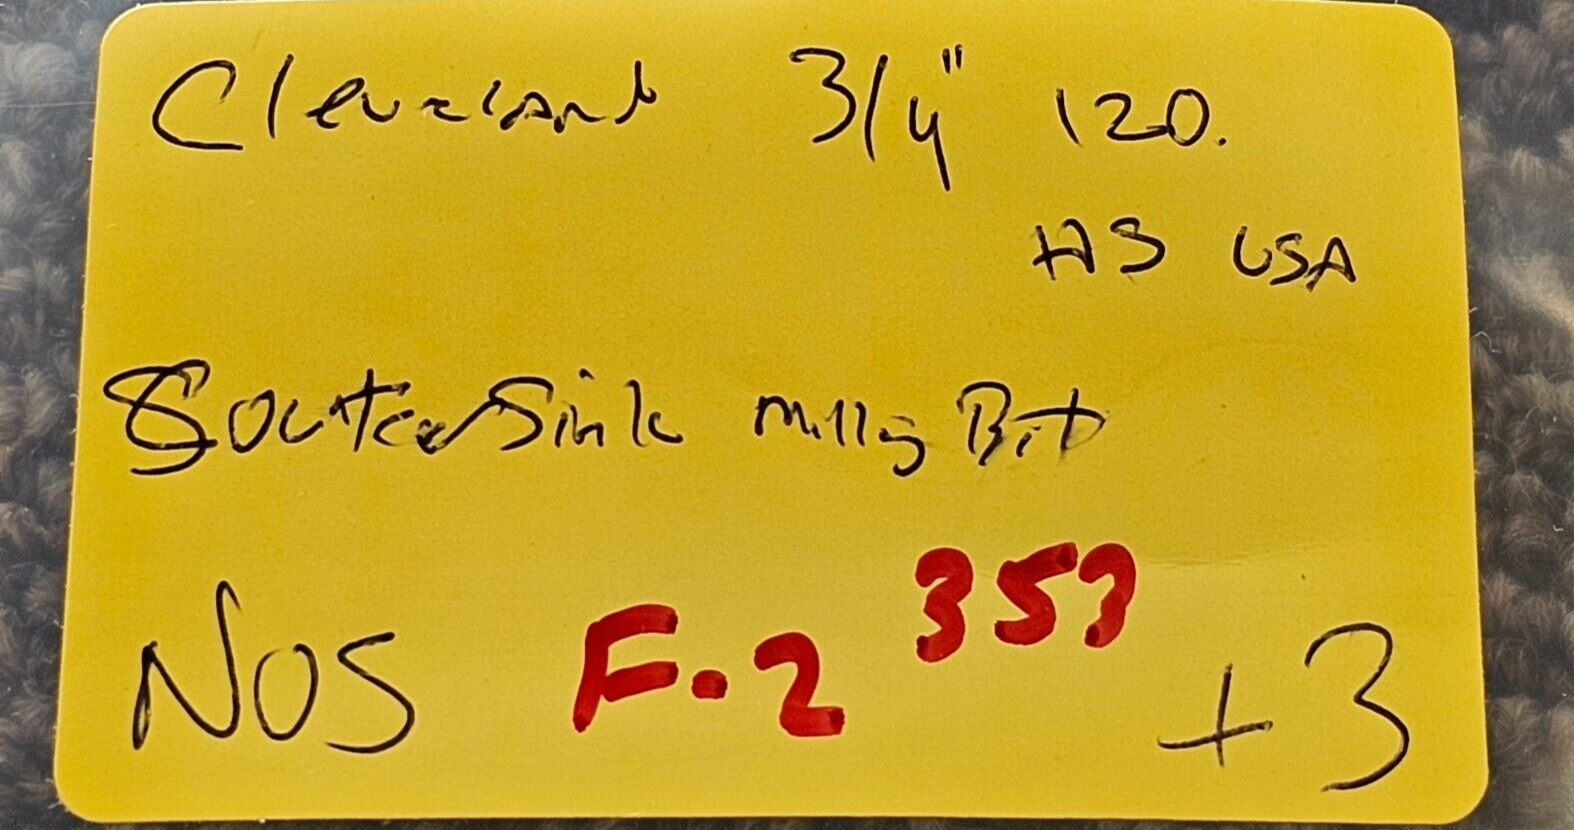 Cleveland 3/4" 120.
HS USA
CounterSink Milling Bit
NOS F.2 357 +3